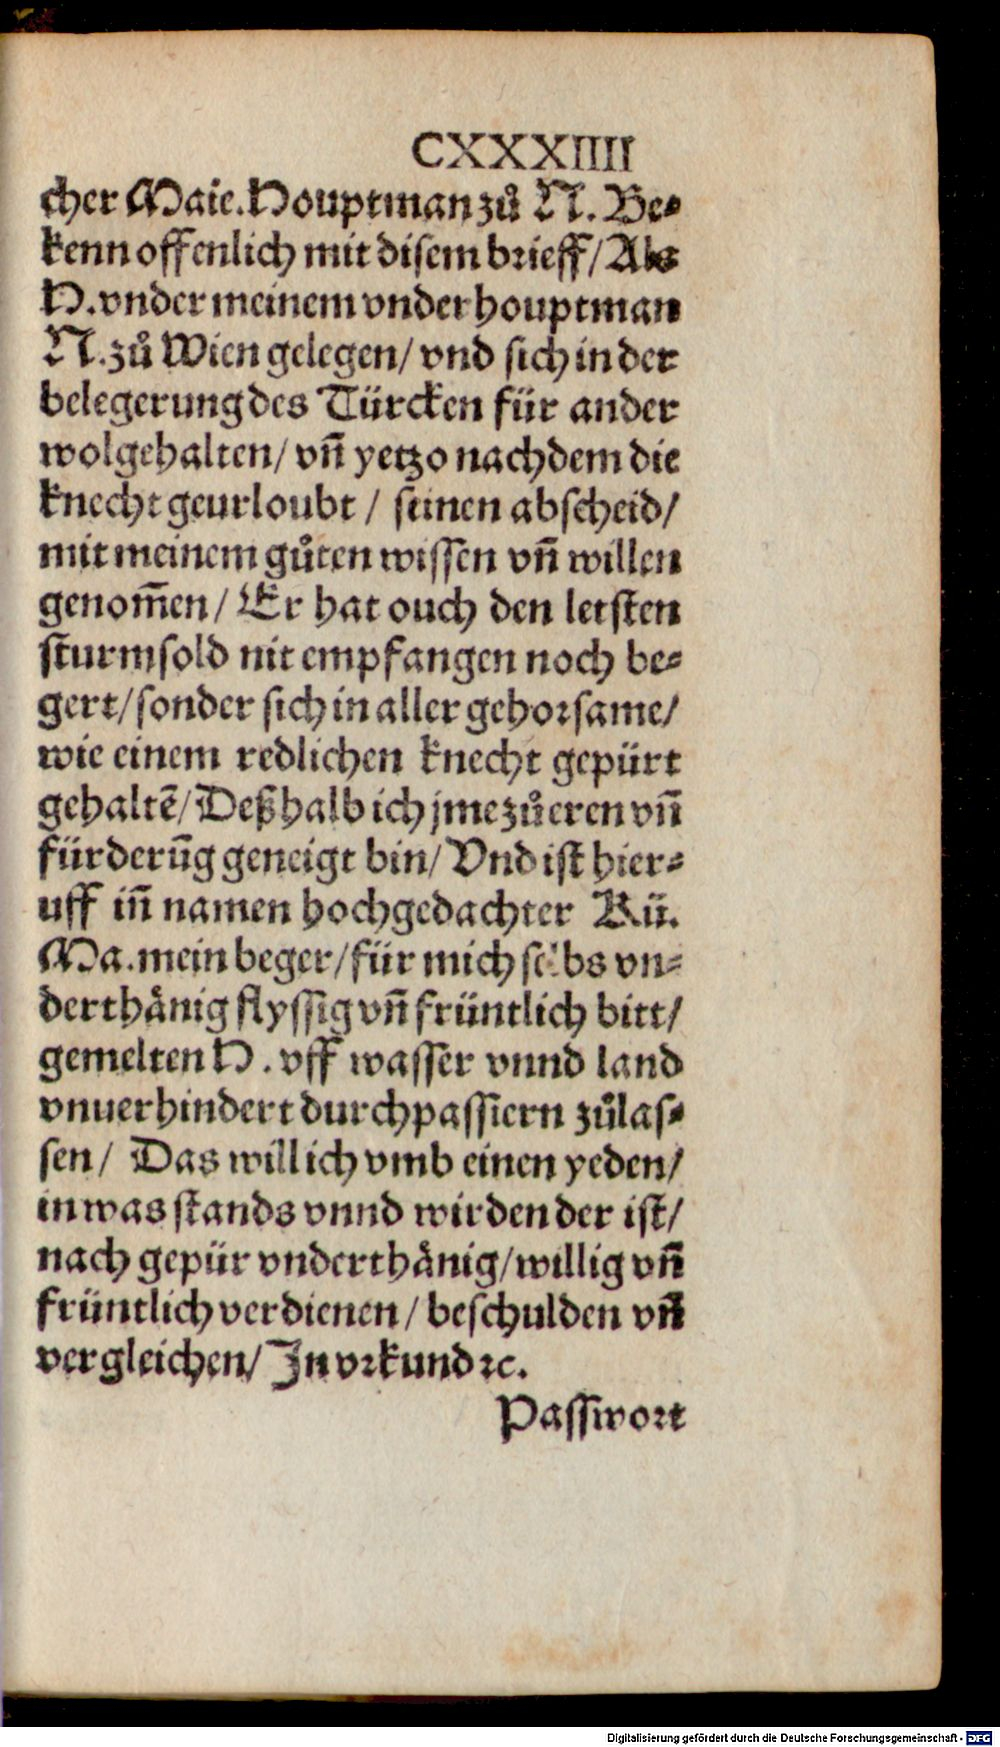 CXXXIIII
cher Maie. Houptman zů N. Be-
kenn offenlich mit disem brieff/ Als
H. vnder meinem vnderhouptman
N. zů Wien gelegen/ vnd sich in der
belegerung des Türcken für ander
wolgehalten/ vñ yetzo nachdem die
knecht geurloubt / seinen abscheid/
mit meinem gůten wissen vñ willen
genom̃en/ Er hat ouch den letsten
sturmsold nit empfangen noch be-
gert/ sonder sich in aller gehorsame/
wie einem redlichen knecht gepürt
gehaltẽ/ Deßhalb ich jme zů eren vñ
fürderũg geneigt bin/ Vnd ist hier-
uff iñ namen hochgedachter Kü.
Ma. mein beger/ für mich selbs vn-
derthånig flyssig vñ früntlich bitt/
gemelten H. vff wasser vnnd land
vnuerhindert durchpassiern zůlas-
sen/ Das will ich vmb einen yeden/
in was stands vnnd wirden der ist/
nach gepür vnderthånig/ willig vñ
früntlich verdienen/ beschulden vñ
vergleichen/ In vrkund ꝛc.
Passwort
Digitalisierung gefördert durch die Deutsche Forschungsgemeinschaft - DFG